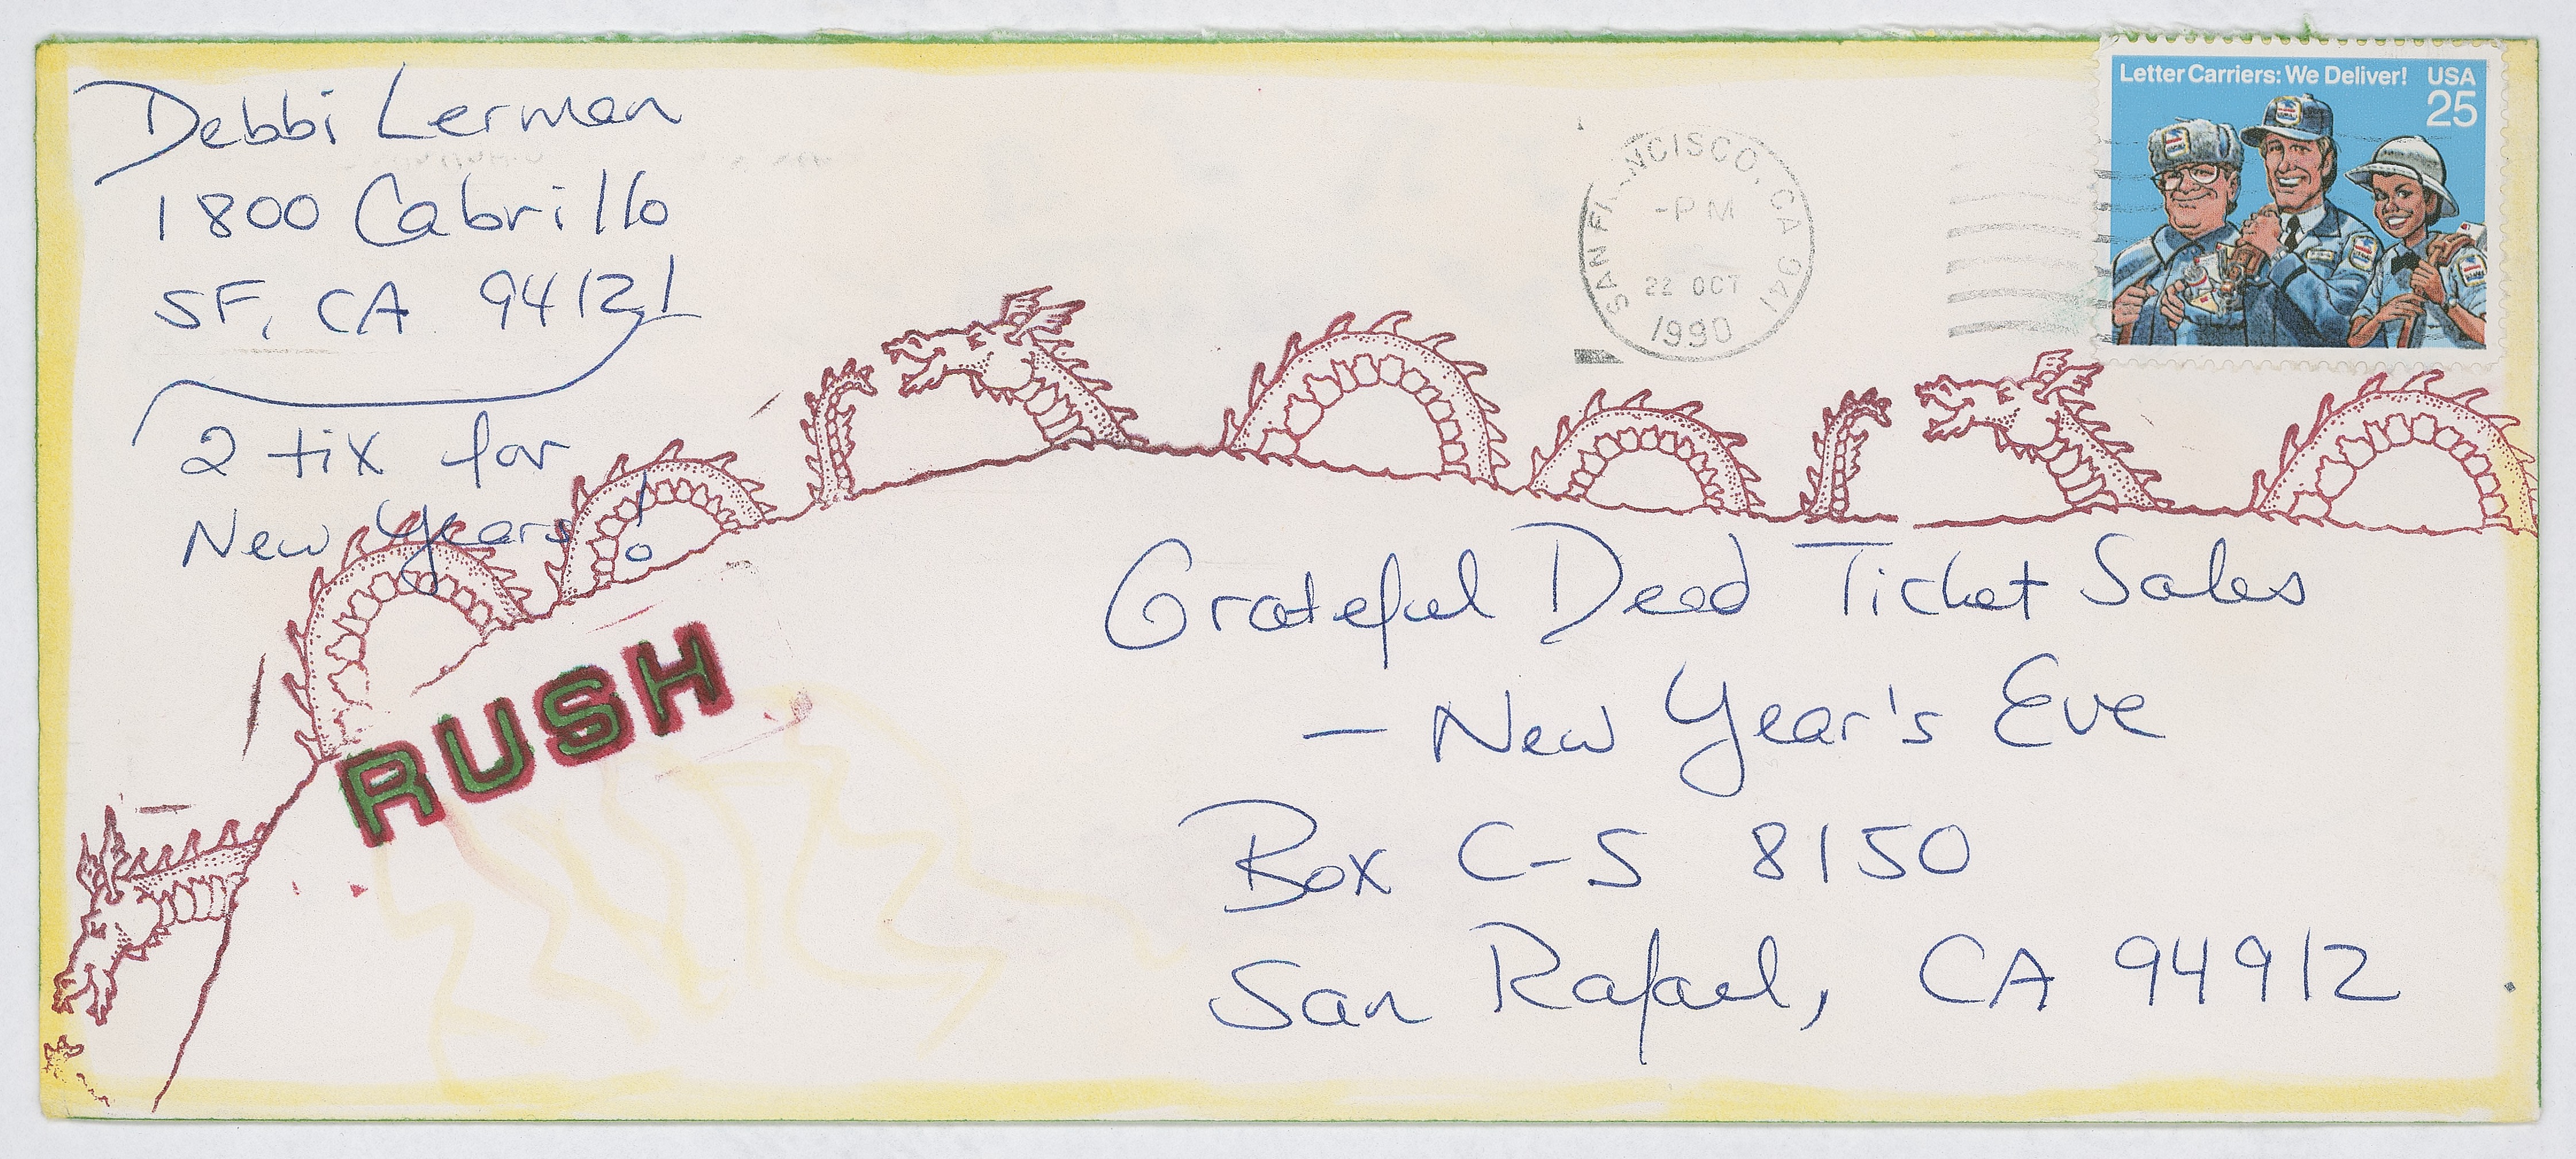 Debbi Lerman
1800 Cabrillo
SF, CA 94121
2 tix for
New Years!
Letter Carriers: We Deliver! USA
25
SAN FRANCISCO, CA 941
-PM
22 OCT
1990
RUSH
Grateful Dead Ticket Sales
- New Year's Eve
Box C-S 8150
San Rafael, CA 94912